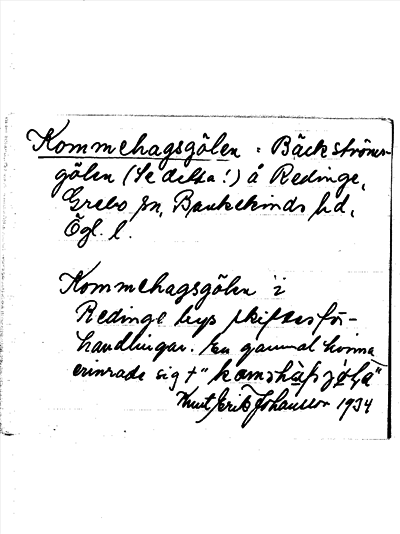 Kommehagsgölen = Bäckströms-
gölen (Se detta!) å Redinge,
Grebo sn, Bankekinds hd,
Ögl. l.
Kommehagsgölen i
Redinge bys skiftesför-
handlingar. En gammal kvinna
erinrade sig
Knut Erik Johansson 1934